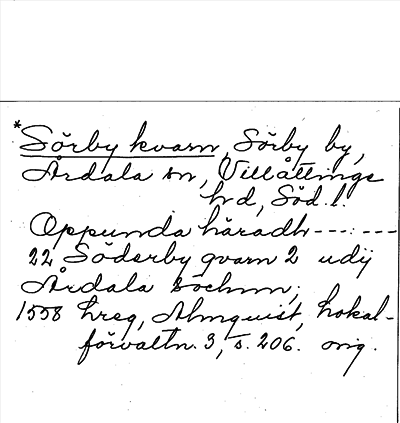 * Sörby kvarn, Sörby by,
Årdala sn, Villåttinge
hd, Söd. l.
Oppunda häradh --- : ---
22 Söderby qvarn 2 udij
Årdala sochnn;
1558 hreg, Almquist, Lokal-
förvaltn. 3, s. 206. orig.